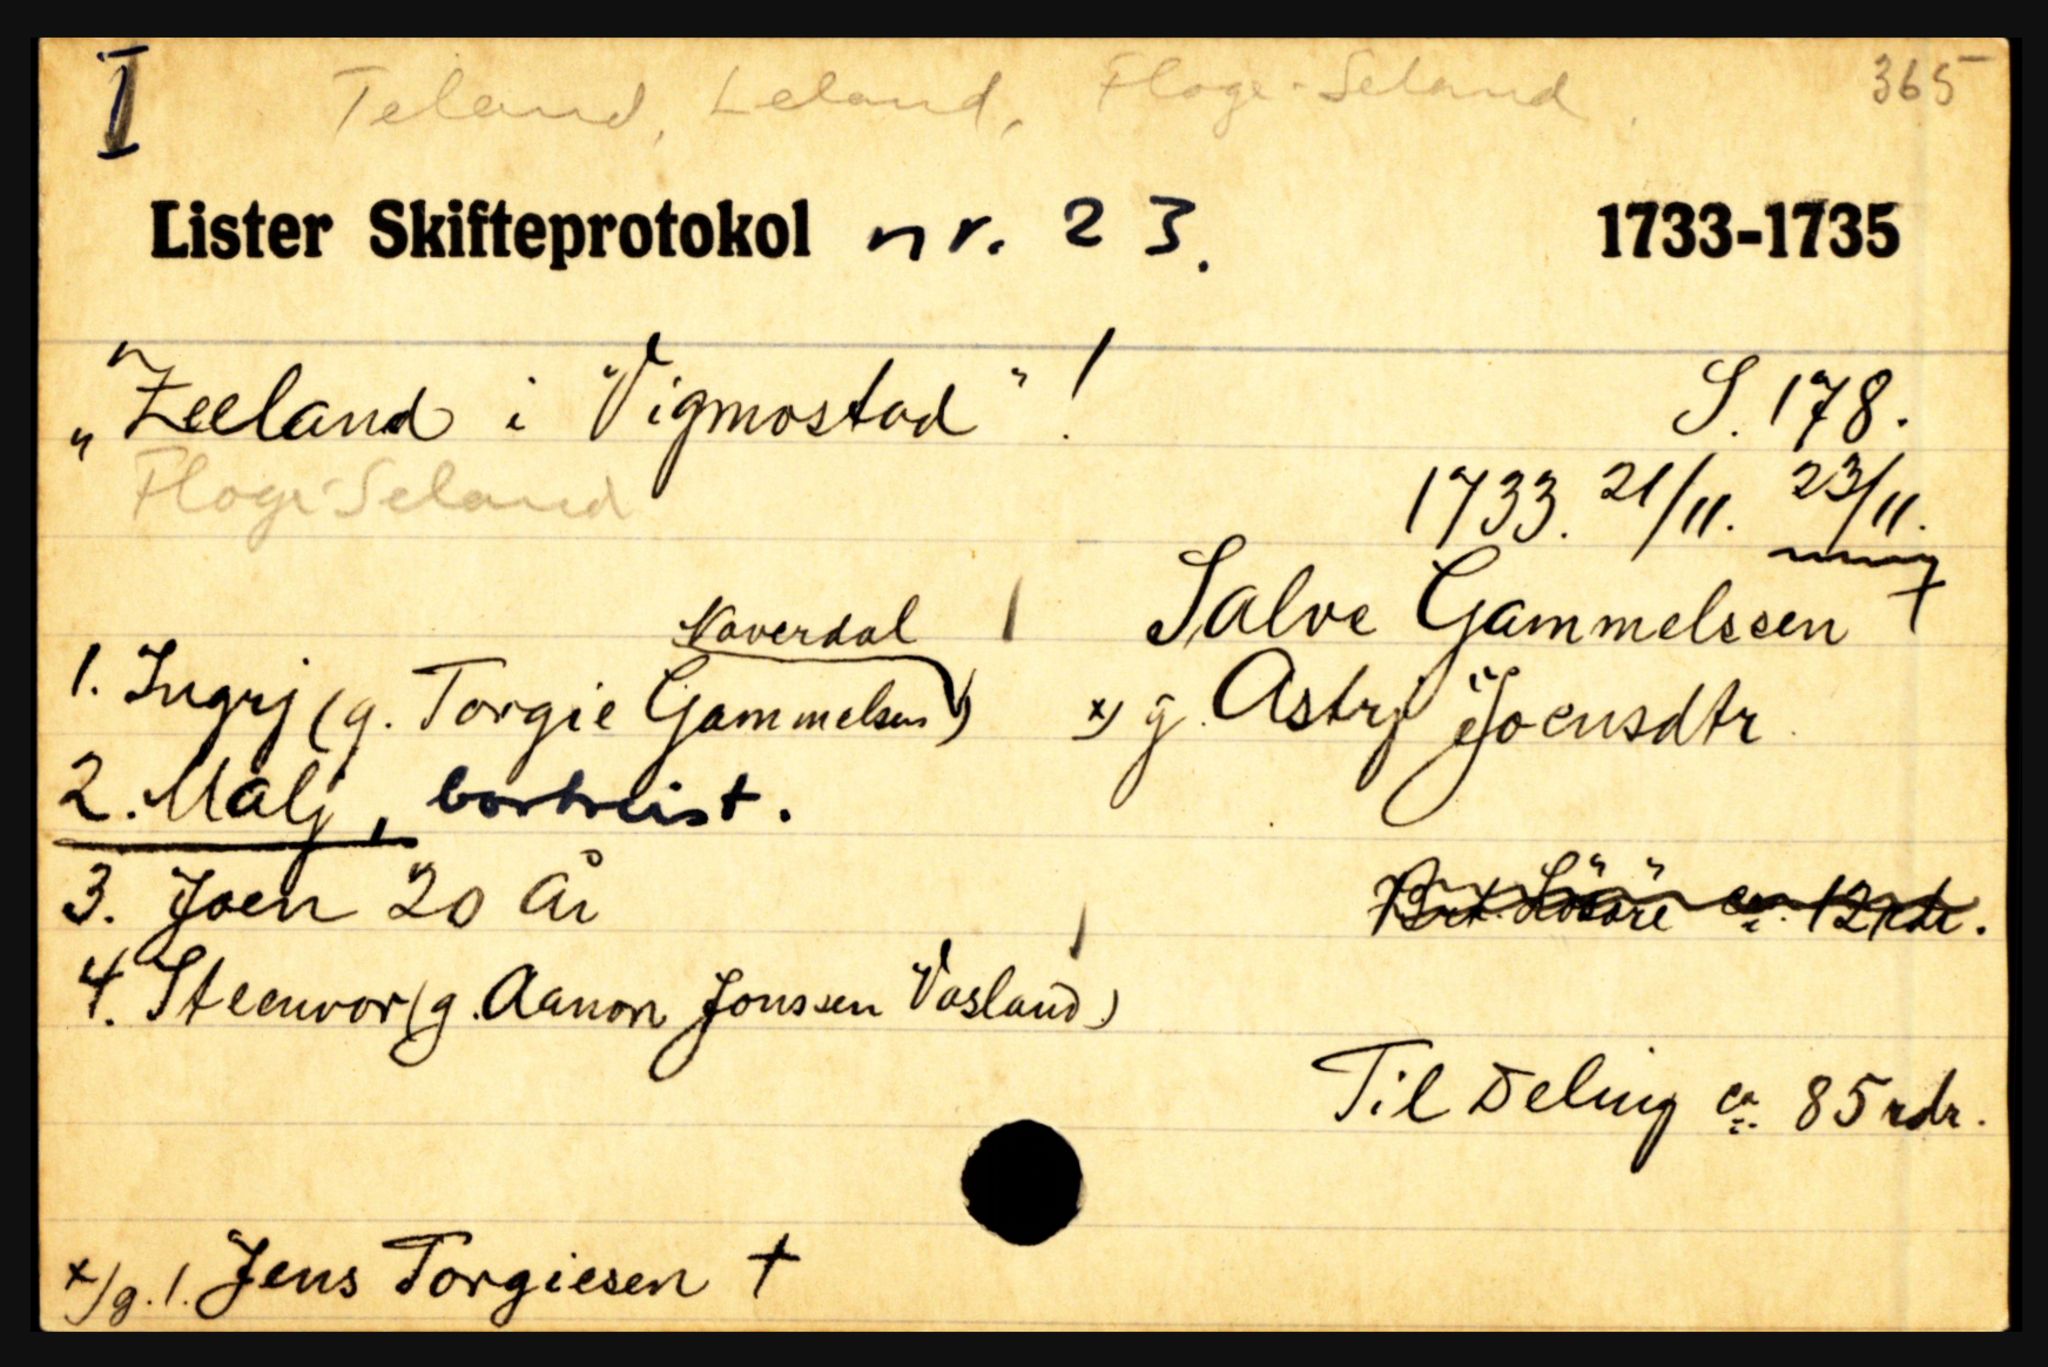 I Teland, Leland, Floge-Seland. 365
Lister Skifteprotokol nr. 23. 1733-1735
„Zeeland i Vigmostad" ! S. 178.
Floge-Seland 1733. 21/11. 23/11.
Salve Gammelssen †
Naverdal
1. Ingrj (g. Torgie Gammelsen) x) g. Astrj Joensdtr.
2. Malj, bortreist.
3. Joen 20 år
Brt. Lösöre ca. 12 rdr.
4. Steenvor (g. Aanon Jonssen Vasland)
Til Deling ca. 85 rdr.
x/ g. 1. Jens Torgiesen †